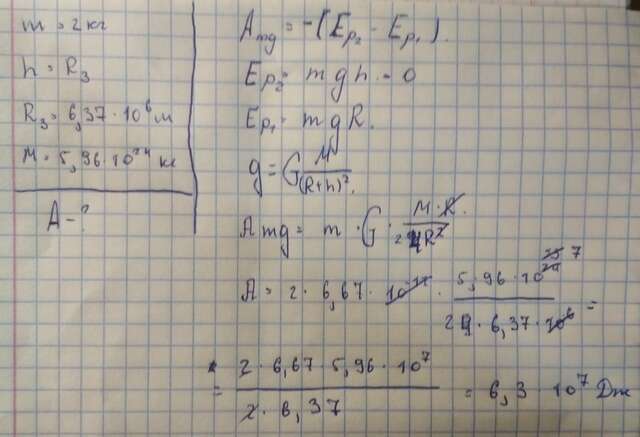 m = 2 кг
h = R₃
R₃ = 6,37 · 10⁶ м
M = 5,96 · 10²⁴ кг
A - ?
A mg = -(Ep₂ - Ep₁).
Ep₂ = mgh = 0
Ep₁ = mgR.
g = G M/(R+h)².
A mg = m · G · M · R/2R²
A = 2 · 6,67 · 10⁻¹¹ · 5,96 · 10²⁴ 7/2 · 6,37 · 10⁶ =
= 2 · 6,67 · 5,96 · 10⁷/2 · 6,37 = 6,3 · 10⁷ Дж